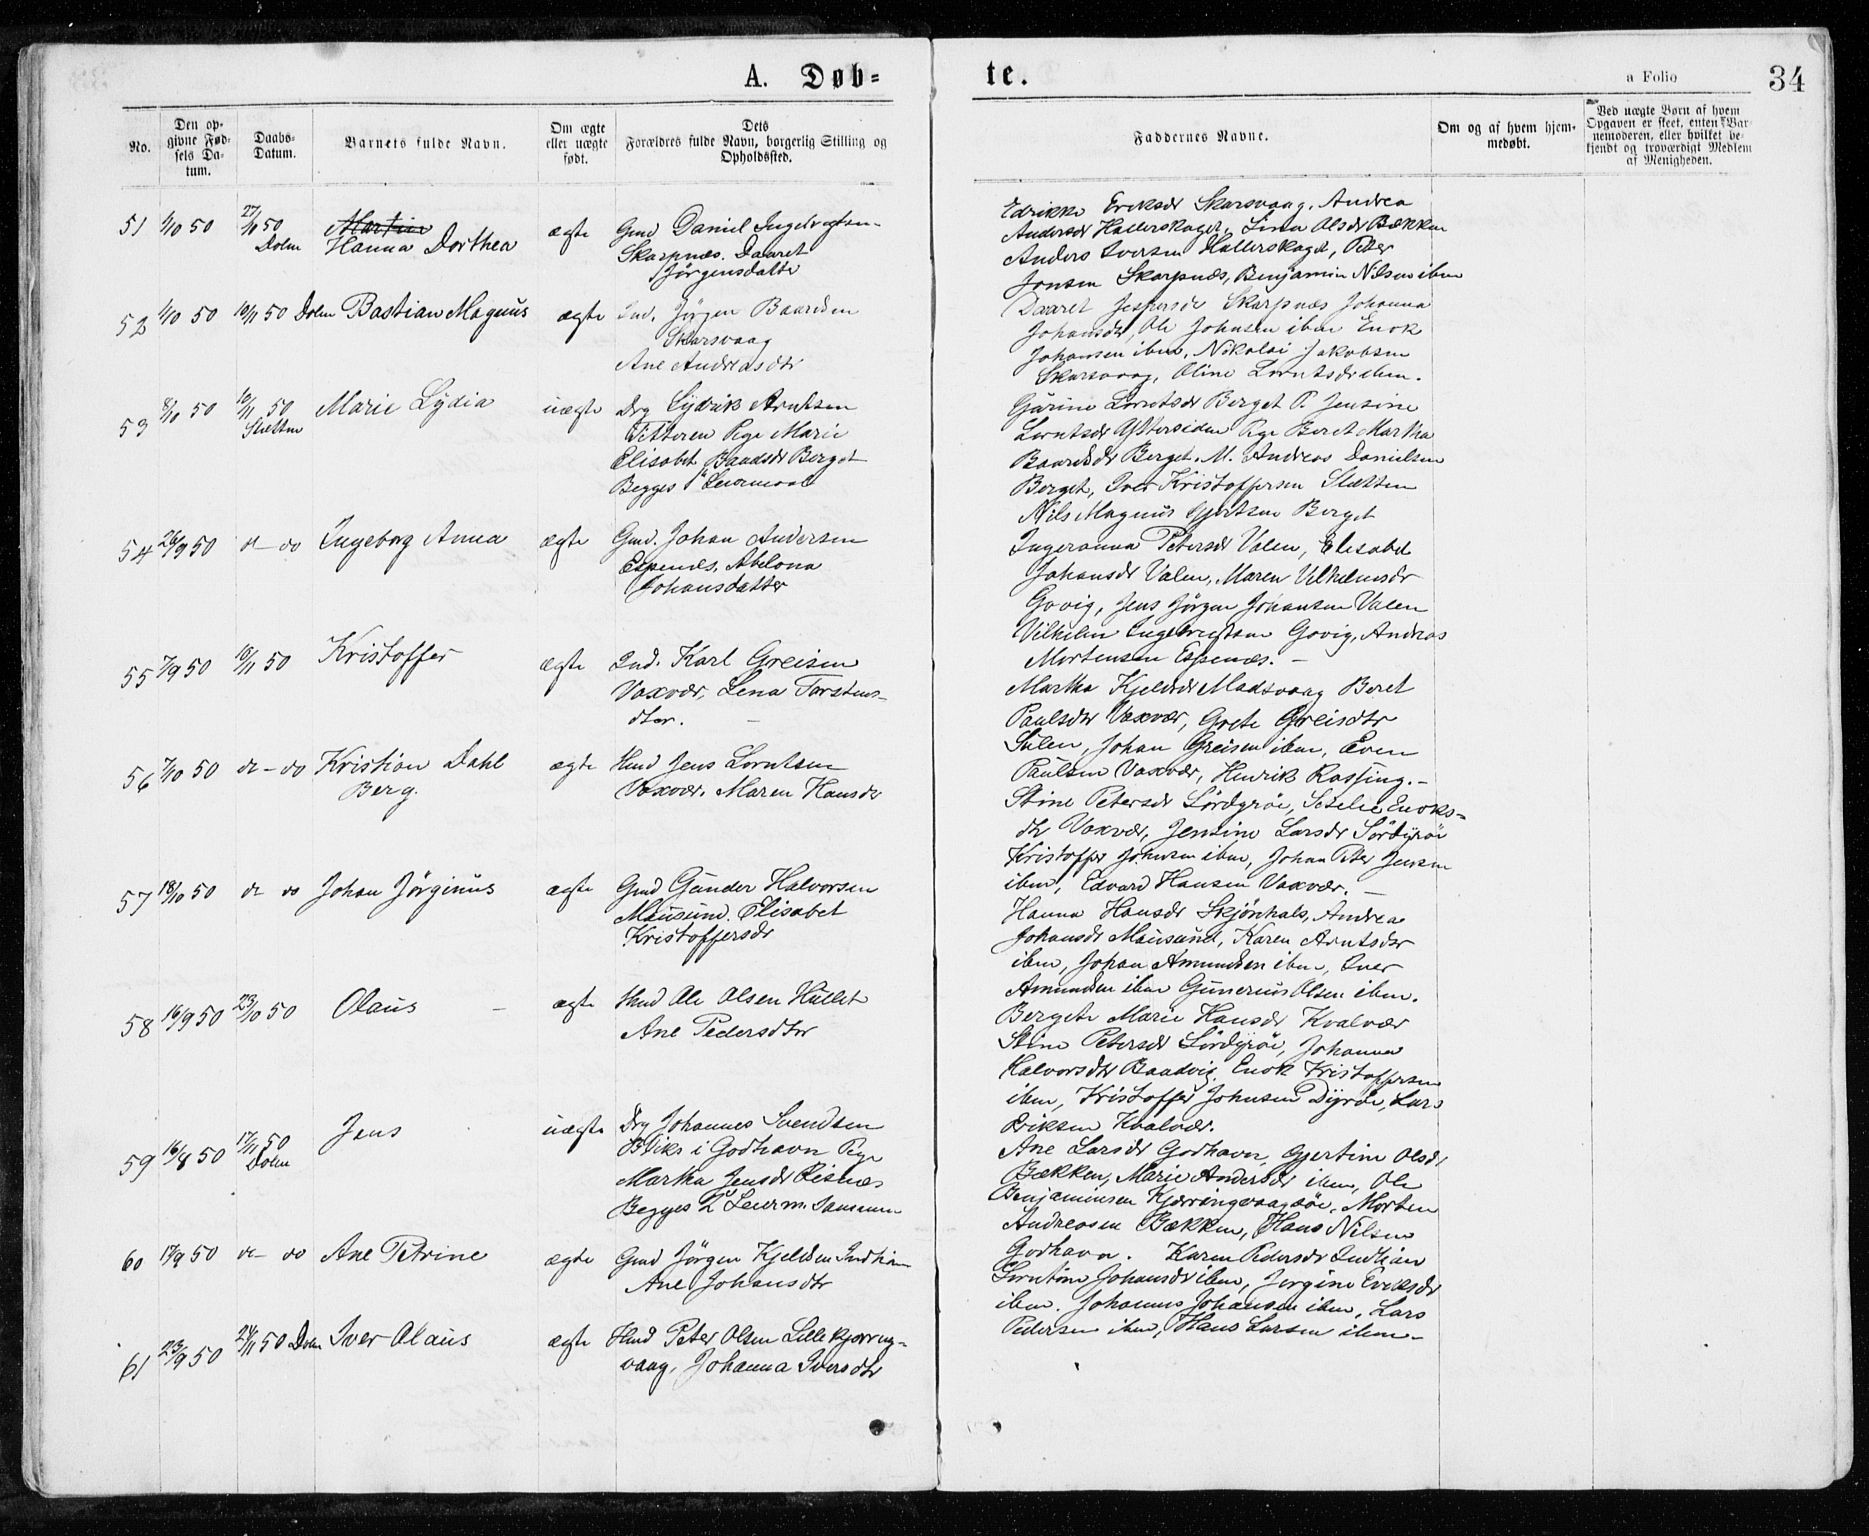 A. Døb=
No.
Den op-
givne Fød-
sels Da-
tum.
Daabs-
Datum.
Barnets fulde Navn.
Om ægte
eller uægte
født.
Dets
Forældres fulde Navn, borgerlig Stilling og
Opholdssted.
51 1/10 50 27/10 50
Dolm
Martin
Hanna Dorthea
ægte
Gmd Daniel Ingebrigtsen
Skarpnæs. Daaret
Jörgensdatte
52 1/10 50 10/11 50 Dolm Bastian Magnus ægte
Ind. Jörgen Baardsen
Skarsvaag
Ane Andreasdtr
53 8/10 50 10/11 50
Sletten
Marie Lydia uægte
Drg Cydrik Arntsen
Titteren Pige Marie
Elisabet Baadsdr Berget
Begges 1ste Leiermaal
54 26/9 50 d– do Ingeborg Anna ægte
Gmd. Johan Andersen
Espenæs. Abelona
Johansdatter
55 7/9 50 10/11 50 Kristoffer ægte
Ind. Karl Greisen
Vaxvær, Lena Torstens-
dter. –
56 7/10 50 d– do Kristian Dahl
Berg.
ægte
Hmd Jens Lorntsen
Vaxvær. Maren Hansdr
57 18/10 50 d– do Johan Jörginus ægte
Gmd Gunder Halvorsen
Mausund. Elisabet
Kristoffersdr
58 16/9 50 23/10 50 Olaus – ægte
Hmd Ole Olsen Hullet
Ane Pedersdtr
59 16/8 50 17/11 50
Dolm
Jens uægte
Drg Johannes Svendsen
Bliks i Godhavn Pige
Martha Jensdr Risnæs
Begges 2 Leierm. sammen
60 17/9 50 d– do Ane Petrine ægte
Gmd Jörgen Kjeldsen Indhian
Ane Johansdtr
61 23/9 50 24/11 50 Dolm Iver Olaus ægte
Hmd Peter Olsen Lillekjerring-
vaag, Johanna Iversdtr
te.
a Folio 34
Faddernes Navne.
Om og af hvem hjem-
medøbt.
Ved uægte Børn af hvem
Opgaven er skeet, enten Bar-
nemoderen, eller hvilket be-
kjendt og troværdigt Medlem
af Menigheden.
Edrikke Eriksdr Skarsvaag, Andrea
Andersdr Hallerskaget, Lina Olsdr Bækken
Anders Iversen Hallerskaget, Peter
Jonsen Skarpnæs, Benjamin Nilsen ibm
Daaret Jespersdr Skarpnæs Johanna
Johansdr, Ole Johnsen ibm Enok
Johansen ibm, Nikolai Jakobsen
Skarsvaag, Oline Lorntsdr ibm.
Gürine Lorntsdr Berget P. Jensine
Lorntsdr Yttersiden Pige Beret Martha
Baardsdr Berget. M. Andreas Danielsen
Berget, Iver Kristoffersen Sletten
Nils Magnus Gjertsen Berget
Ingeranna Petersdr Valen, Elisabet
Johansdr Valen, Maren Vilhelmsdr
Govig, Jens Jörgen Johansen Valen
Vilhelm Ingebrigtsen Govig, Andreas
Mortensen Espenæs. –
Martha Kjeldsdr Madsvaag Beret
Paulsdtr Vaxvær, Grete Greisdtr
Sulen, Johan Greisen ibm, Even
Paulsen Vaxvær, Henrik Rossing. –
Stine Petersdr Sördyröe, Setelie Enoks-
dtr Vaxvær, Jensine Larsdr Sördyröe
Kristoffer Johnsen ibm, Johan Peter Jensen
ibm, Edvard Hansen Vaxvær. –
Hanna Hansdr Skjönhals, Andrea
Johansdr Mausund, Karen Arntsdtr
ibm, Johan Amundsen ibm, Iver
Amundsen ibm Gunerius Olsen ibm.
Bergete Marie Hansdr Kvalvær
Stine Petersdr Sördyröe, Johanna
Halvorsdtr Baadvig, Enok Kristoffersen
ibm, Kristoffer Johnsen Dyröe, Lars
Eriksen Kvalvær.
Ane Larsdr Godhavn, Gjertine Olsdr
Bækken, Marie Andersdr ibm, Ole
Benjaminsen Kjerringvaagsöe, Morten
Andreasen Bækken, Hans Nilsen
Godhavn. Karen Pedersdr Indhian
Lorntine Johansdr ibm, Jorgine Eriksdr
ibm. Johannes Johansen ibm, Lars
Pedersen ibm, Hans Larsen ibm –